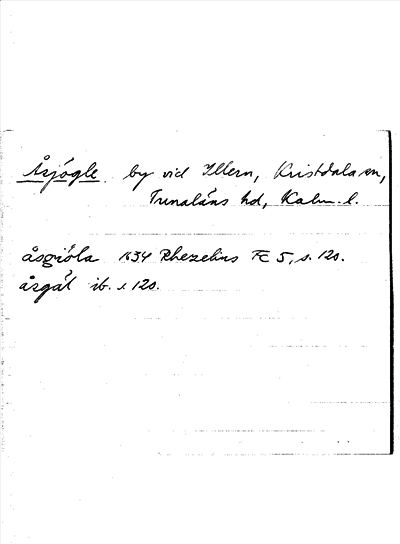 Åsjögle. by vid Illern, Kristdala sn,
Tunaläns hd, Kalm. l.
åsgiöla 1634 Rhezelius FC 5, s. 120.
åsgöl ib. s. 120.